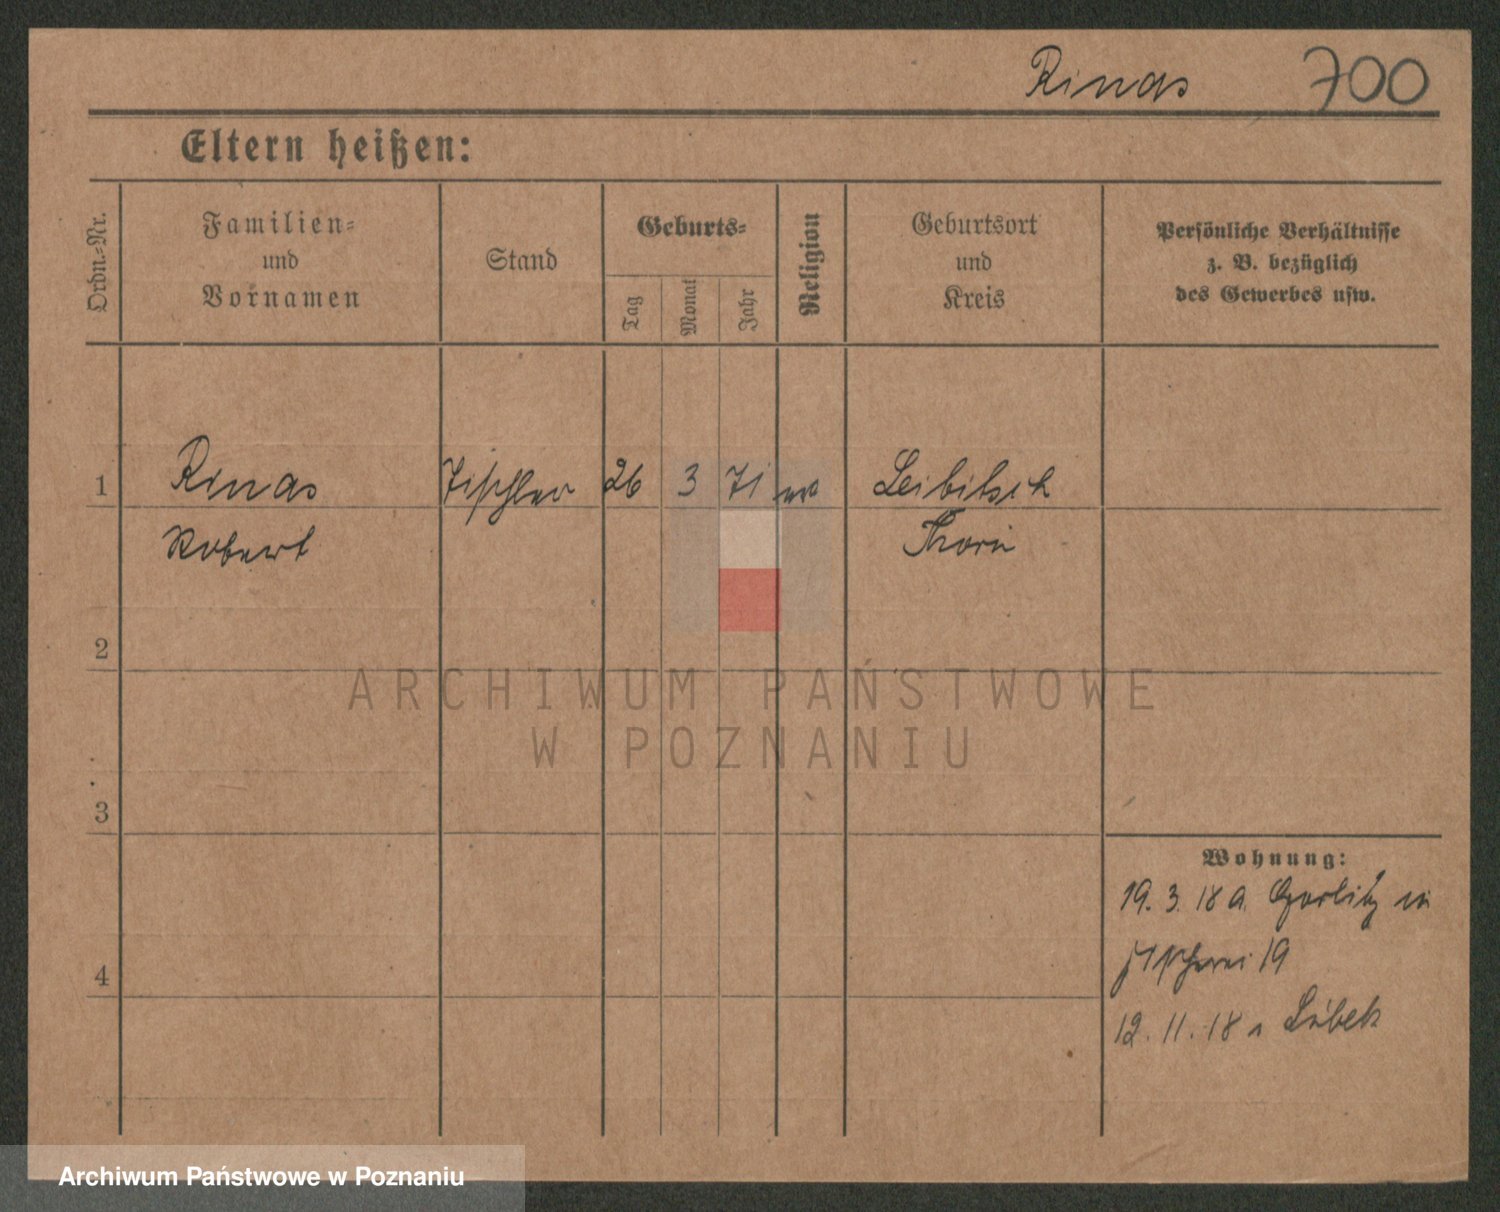 Rinas 700
Eltern heißen:
Ordn.-Nr.
Familien-
und
Vornamen
Stand
Geburts-
Tag
Monat
Jahr
Religion
Geburtsort
und
Kreis
Persönliche Verhältnisse
z. B. bezüglich
des Gewerbes usw.
1 Rinas Tischler 26 3 71 ev Leibitsch
Robert Thorn
2
3
4
Wohnung:
19. 3. 18 a. Gorlitz in
19
12. 11. 18 n Lübek
ARCHIWUM PAŃSTWOWE
W POZNANIU
Archiwum Państwowe w Poznaniu